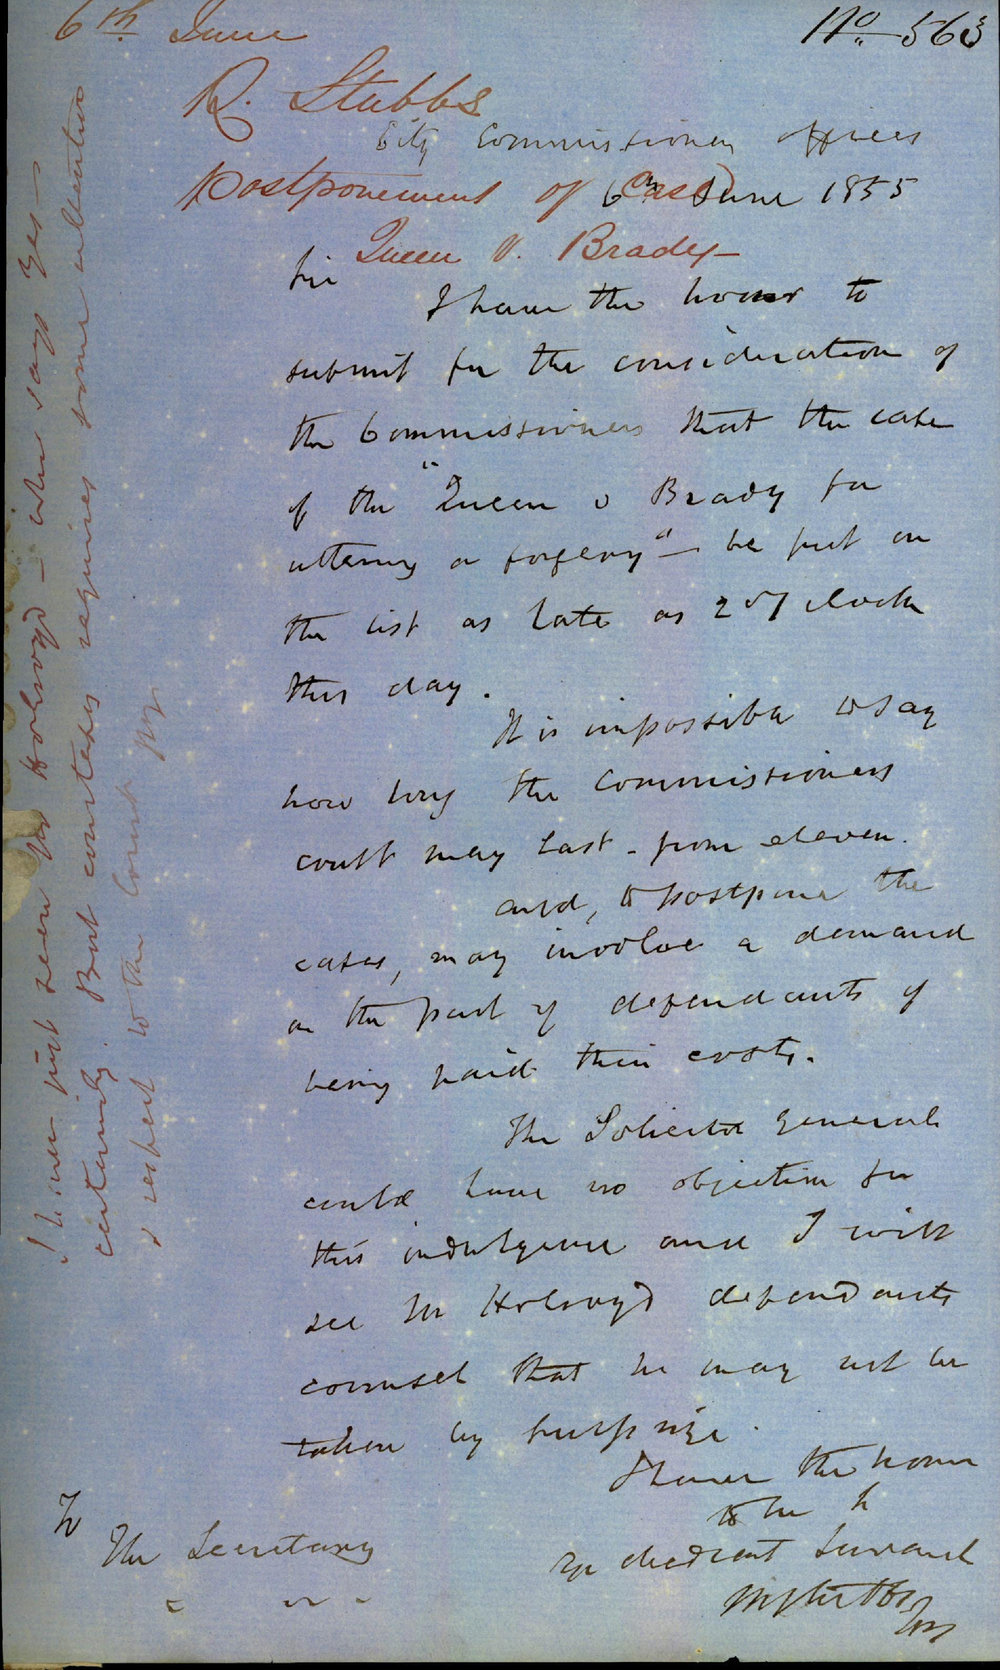 6th June
No 563
R. Stubbs
City Commissioners offices
Postponement of Case
6th June 1855
Queen v. Brady—
Sir
I have the honor to
submit for the consideration of
the Commissioners that the case
of the "Queen v Brady for
uttering a forgery" — be put on
the list as late as 2 o'clock
this day.
It is impossible to say
how long the Commissioners
court may last - from eleven.
and, to postpone the
cases, may involve a demand
on the part of defendants of
being paid their costs.
The Solicitor General
could have no objection for
this indulgence and I will
see Mr Holroyd defendants
counsel that he may not be
taken by surprise.
I have the honor
to be
Yr obedient Servant
To
The Secretary
I have just seen Mr Holroyd — who says Yes —
certainly. But courtesy requires some attention
& respect to the Court